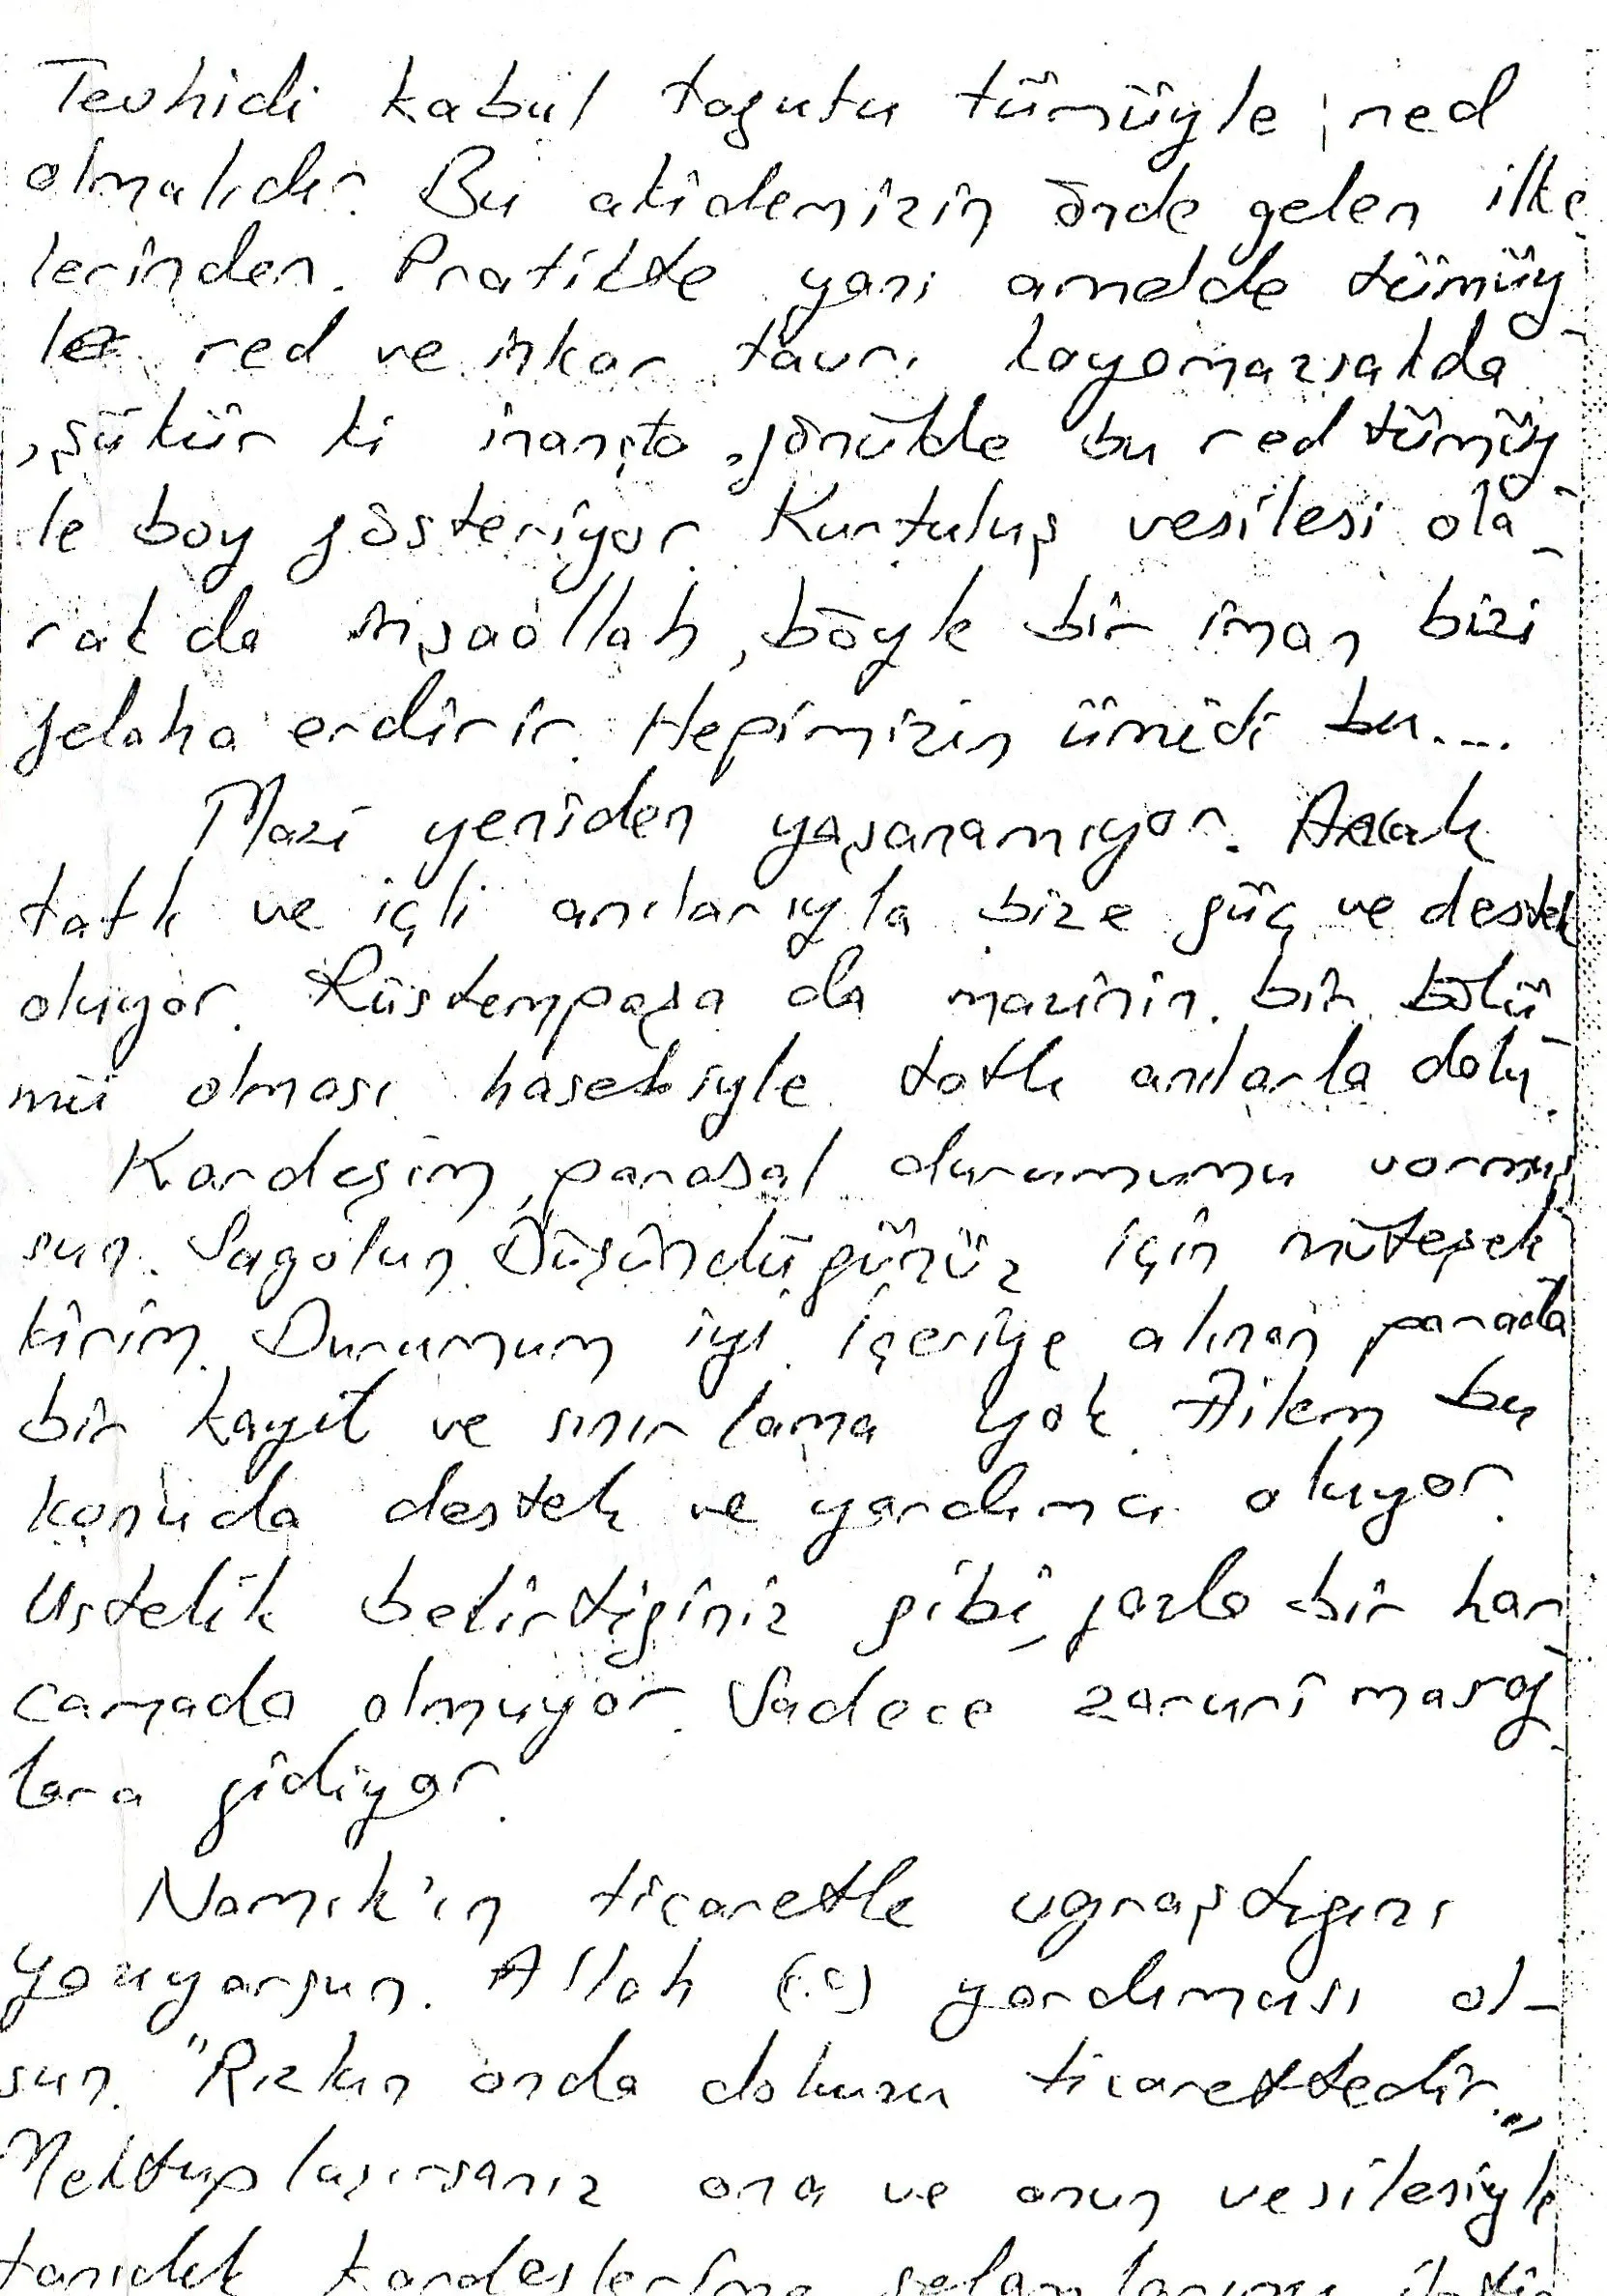 Tevhidi kabul tagutu tümüyle red
olmalıdır. Bu akidemizin önde gelen ilke
lerinden. Pratikte yani amelde tümüy
le red ve inkar tavrı koyamazsakda
, şükür ki inançta, gönülde bu red tümüy-
le boy gösteriyor. Kurtuluş vesilesi ola-
rak da inşaallah, böyle bir iman bizi
felaha erdirir. Hepimizin ümidi bu....
Mazi yeniden yaşanamıyor. Ancak
tatlı ve içli anılarıyla bize güç ve destek
oluyor. Rüstempaşa da mazinin bir bölü-
mü olması hasebiyle tatlı anılarla dolu.
Kardeşim, parasal durumumu
sun. Sagolun. Düşündügünüz için müteşek
kirim. Durumum iyi. İçeriye alınan parada
bir kayıt ve sınırlama yok. Ailem bu
konuda destek ve yardımcı oluyor.
Üstelik belirttiginiz gibi, fazla bir har-
camada olmuyor. Sadece zaruri masraf-
lara gidiyor.
Namık'ın ticaretle ugraştıgını
yazıyorsun. Allah (c.c) yardımcısı ol-
sun. "Rızkın onda dokuzu ticarettedir.„
Mektuplaşırsanız ona ve onun vesilesiyle
tanıdık kardeşlerime selamlarımı iletin